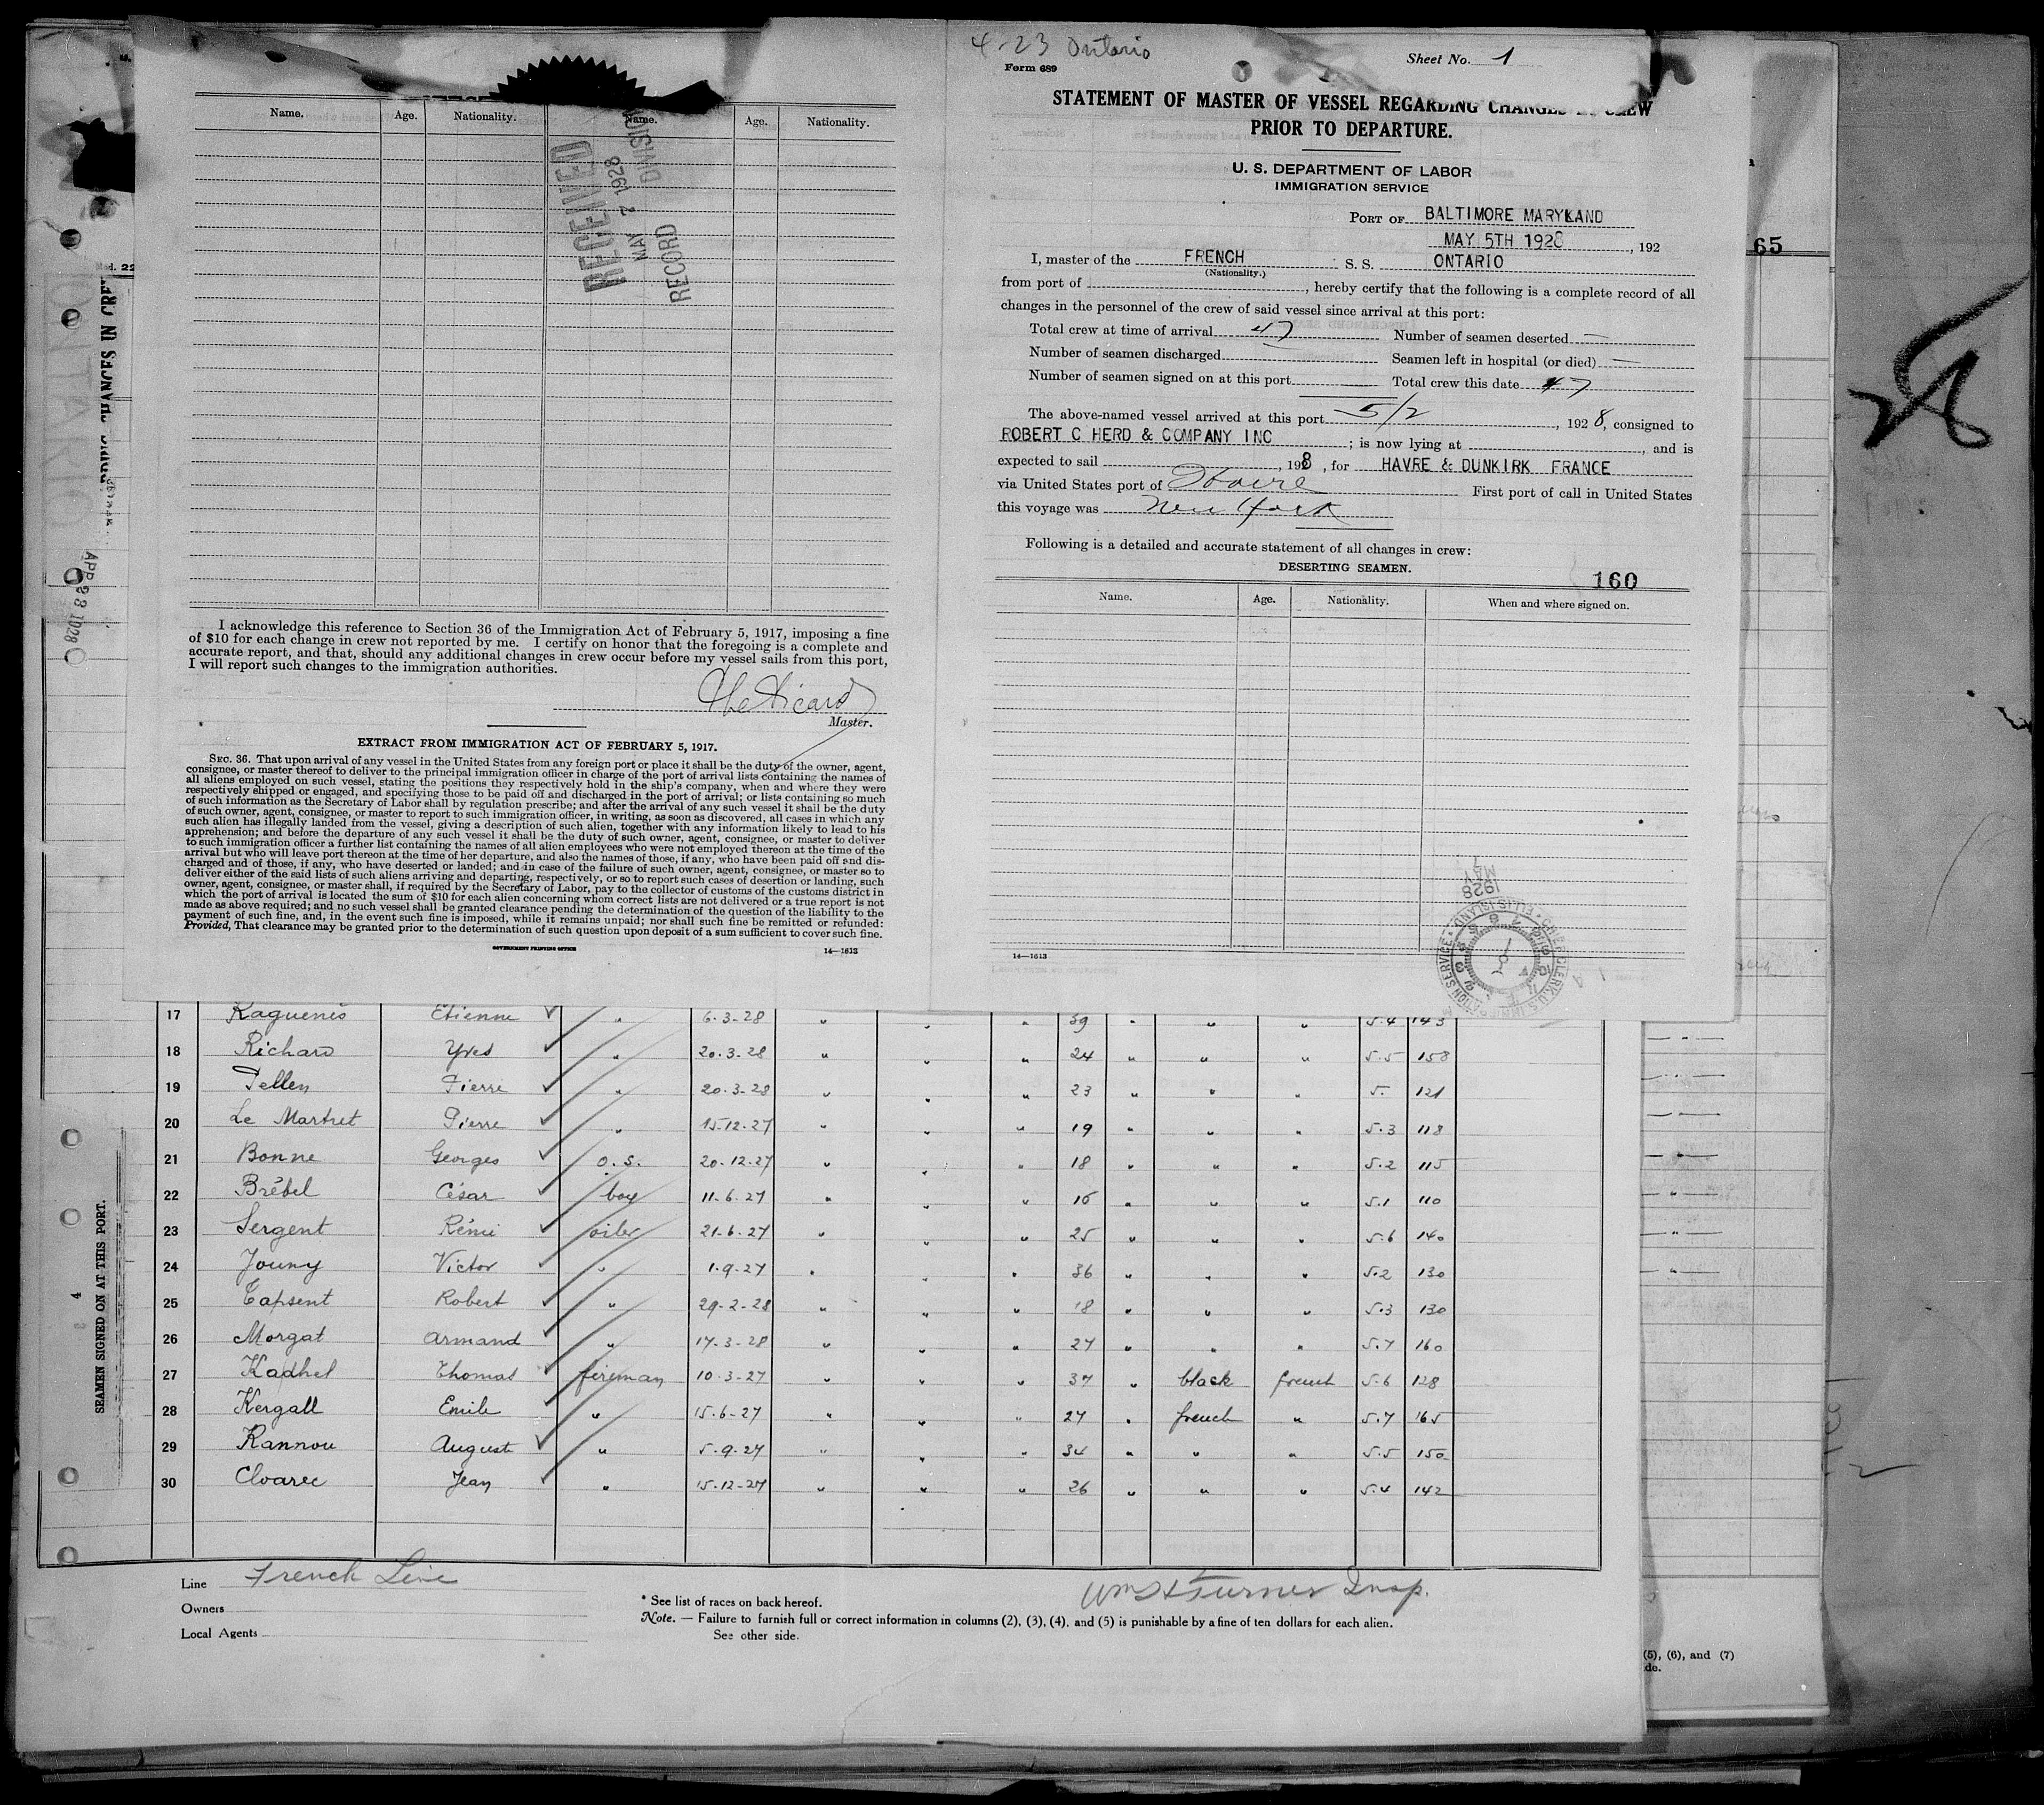 4-23 Ontario
Form 689
Sheet No. 1
STATEMENT OF MASTER OF VESSEL REGARDING CHANGES CREW
PRIOR TO DEPARTURE.
U. S. DEPARTMENT OF LABOR
IMMIGRATION SERVICE
PORT OF BALTIMORE MARYLAND
MAY 5TH 1928, 192
I, master of the FRENCH S. S. ONTARIO
(Nationality.)
from port of , hereby certify that the following is a complete record of all
changes in the personnel of the crew of said vessel since arrival at this port:
Total crew at time of arrival 47 Number of seamen deserted —
Number of seamen discharged — Seamen left in hospital (or died) —
Number of seamen signed on at this port — Total crew this date 47
The above-named vessel arrived at this port 5/2, 1928, consigned to
ROBERT C HERD & COMPANY INC ; is now lying at , and is
expected to sail , 198, for HAVRE & DUNKIRK FRANCE
via United States port of First port of call in United States
this voyage was New York
Following is a detailed and accurate statement of all changes in crew:
DESERTING SEAMEN.
160
Name. Age. Nationality. When and where signed on.
MAY
1928
14—1613
Name. Age. Nationality. Name. Age. Nationality.
RECEIVED
MAY 2 1928
RECORD DIVISION
I acknowledge this reference to Section 36 of the Immigration Act of February 5, 1917, imposing a fine
of $10 for each change in crew not reported by me. I certify on honor that the foregoing is a complete and
accurate report, and that, should any additional changes in crew occur before my vessel sails from this port,
I will report such changes to the immigration authorities.
Master.
EXTRACT FROM IMMIGRATION ACT OF FEBRUARY 5, 1917.
SEC. 36. That upon arrival of any vessel in the United States from any foreign port or place it shall be the duty of the owner, agent,
consignee, or master thereof to deliver to the principal immigration officer in charge of the port of arrival lists containing the names of
all aliens employed on such vessel, stating the positions they respectively hold in the ship's company, when and where they were
respectively shipped or engaged, and specifying those to be paid off and discharged in the port of arrival; or lists containing so much
of such information as the Secretary of Labor shall by regulation prescribe; and after the arrival of any such vessel it shall be the duty
of such owner, agent, consignee, or master to report to such immigration officer, in writing, as soon as discovered, all cases in which any
such alien has illegally landed from the vessel, giving a description of such alien, together with any information likely to lead to his
apprehension; and before the departure of any such vessel it shall be the duty of such owner, agent, consignee, or master to deliver
to such immigration officer a further list containing the names of all alien employees who were not employed thereon at the time of the
arrival but who will leave port thereon at the time of her departure, and also the names of those, if any, who have been paid off and dis-
charged and of those, if any, who have deserted or landed; and in case of the failure of such owner, agent, consignee, or master so to
deliver either of the said lists of such aliens arriving and departing, respectively, or so to report such cases of desertion or landing, such
owner, agent, consignee, or master shall, if required by the Secretary of Labor, pay to the collector of customs of the customs district in
which the port of arrival is located the sum of $10 for each alien concerning whom correct lists are not delivered or a true report is not
made as above required; and no such vessel shall be granted clearance pending the determination of the question of the liability to the
payment of such fine, and, in the event such fine is imposed, while it remains unpaid; nor shall such fine be remitted or refunded:
Provided, That clearance may be granted prior to the determination of such question upon deposit of a sum sufficient to cover such fine.
GOVERNMENT PRINTING OFFICE 14—1613
65
CHANGES IN CRE
SEAMEN SIGNED ON AT THIS PORT.
17 Raguenès Etienne " 6-3-28 " " " 39 " " " 5.4 143
18 Richard Yves " 20-3-28 " " " 24 " " " 5.5 158
19 Pellen Pierre " 20-3-28 " " " 23 " " " 5. 121
20 Le Martret Pierre " 15-12-27 " " " 19 " " " 5.3 118
21 Bonne Georges O.S. 20-12-27 " " " 18 " " " 5.2 115
22 Brébel César boy 11-6-27 " " " 16 " " " 5.1 110
23 Sergent Rémi oiler 21-6-27 " " " 25 " " " 5.6 140
24 Jouny Victor " 1-9-27 " " " 36 " " " 5.2 130
25 Tapsent Robert " 29-2-28 " " " 18 " " " 5.3 130
26 Morgat Armand " 17-3-28 " " " 27 " " " 5.7 160
27 Kadhel Thomas fireman 10-3-27 " " " 37 " black french 5.6 128
28 Kergall Emile " 15-6-27 " " " 27 " french " 5.7 165
29 Rannou August " 5-9-27 " " " 34 " " " 5.5 150
30 Cloarec Jean " 15-12-27 " " " 26 " " " 5.4 142
Line French Line
Owners
Local Agents
* See list of races on back hereof.
Note. — Failure to furnish full or correct information in columns (2), (3), (4), and (5) is punishable by a fine of ten dollars for each alien.
See other side.
Wm H Turner Insp.
(5), (6), and (7)
de.